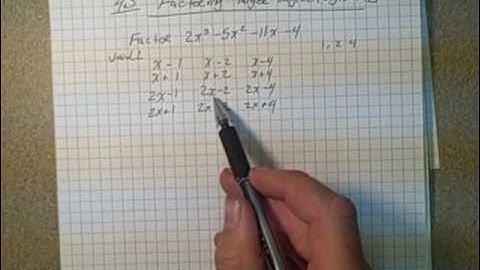 4.3 Factoring
Factor 2x³-5x²-11x-4
1, 2 4
x-1 x-2 x-4
x+1 x+2 x+4
2x-1 2x-2 2x-4
2x+1 2x+4